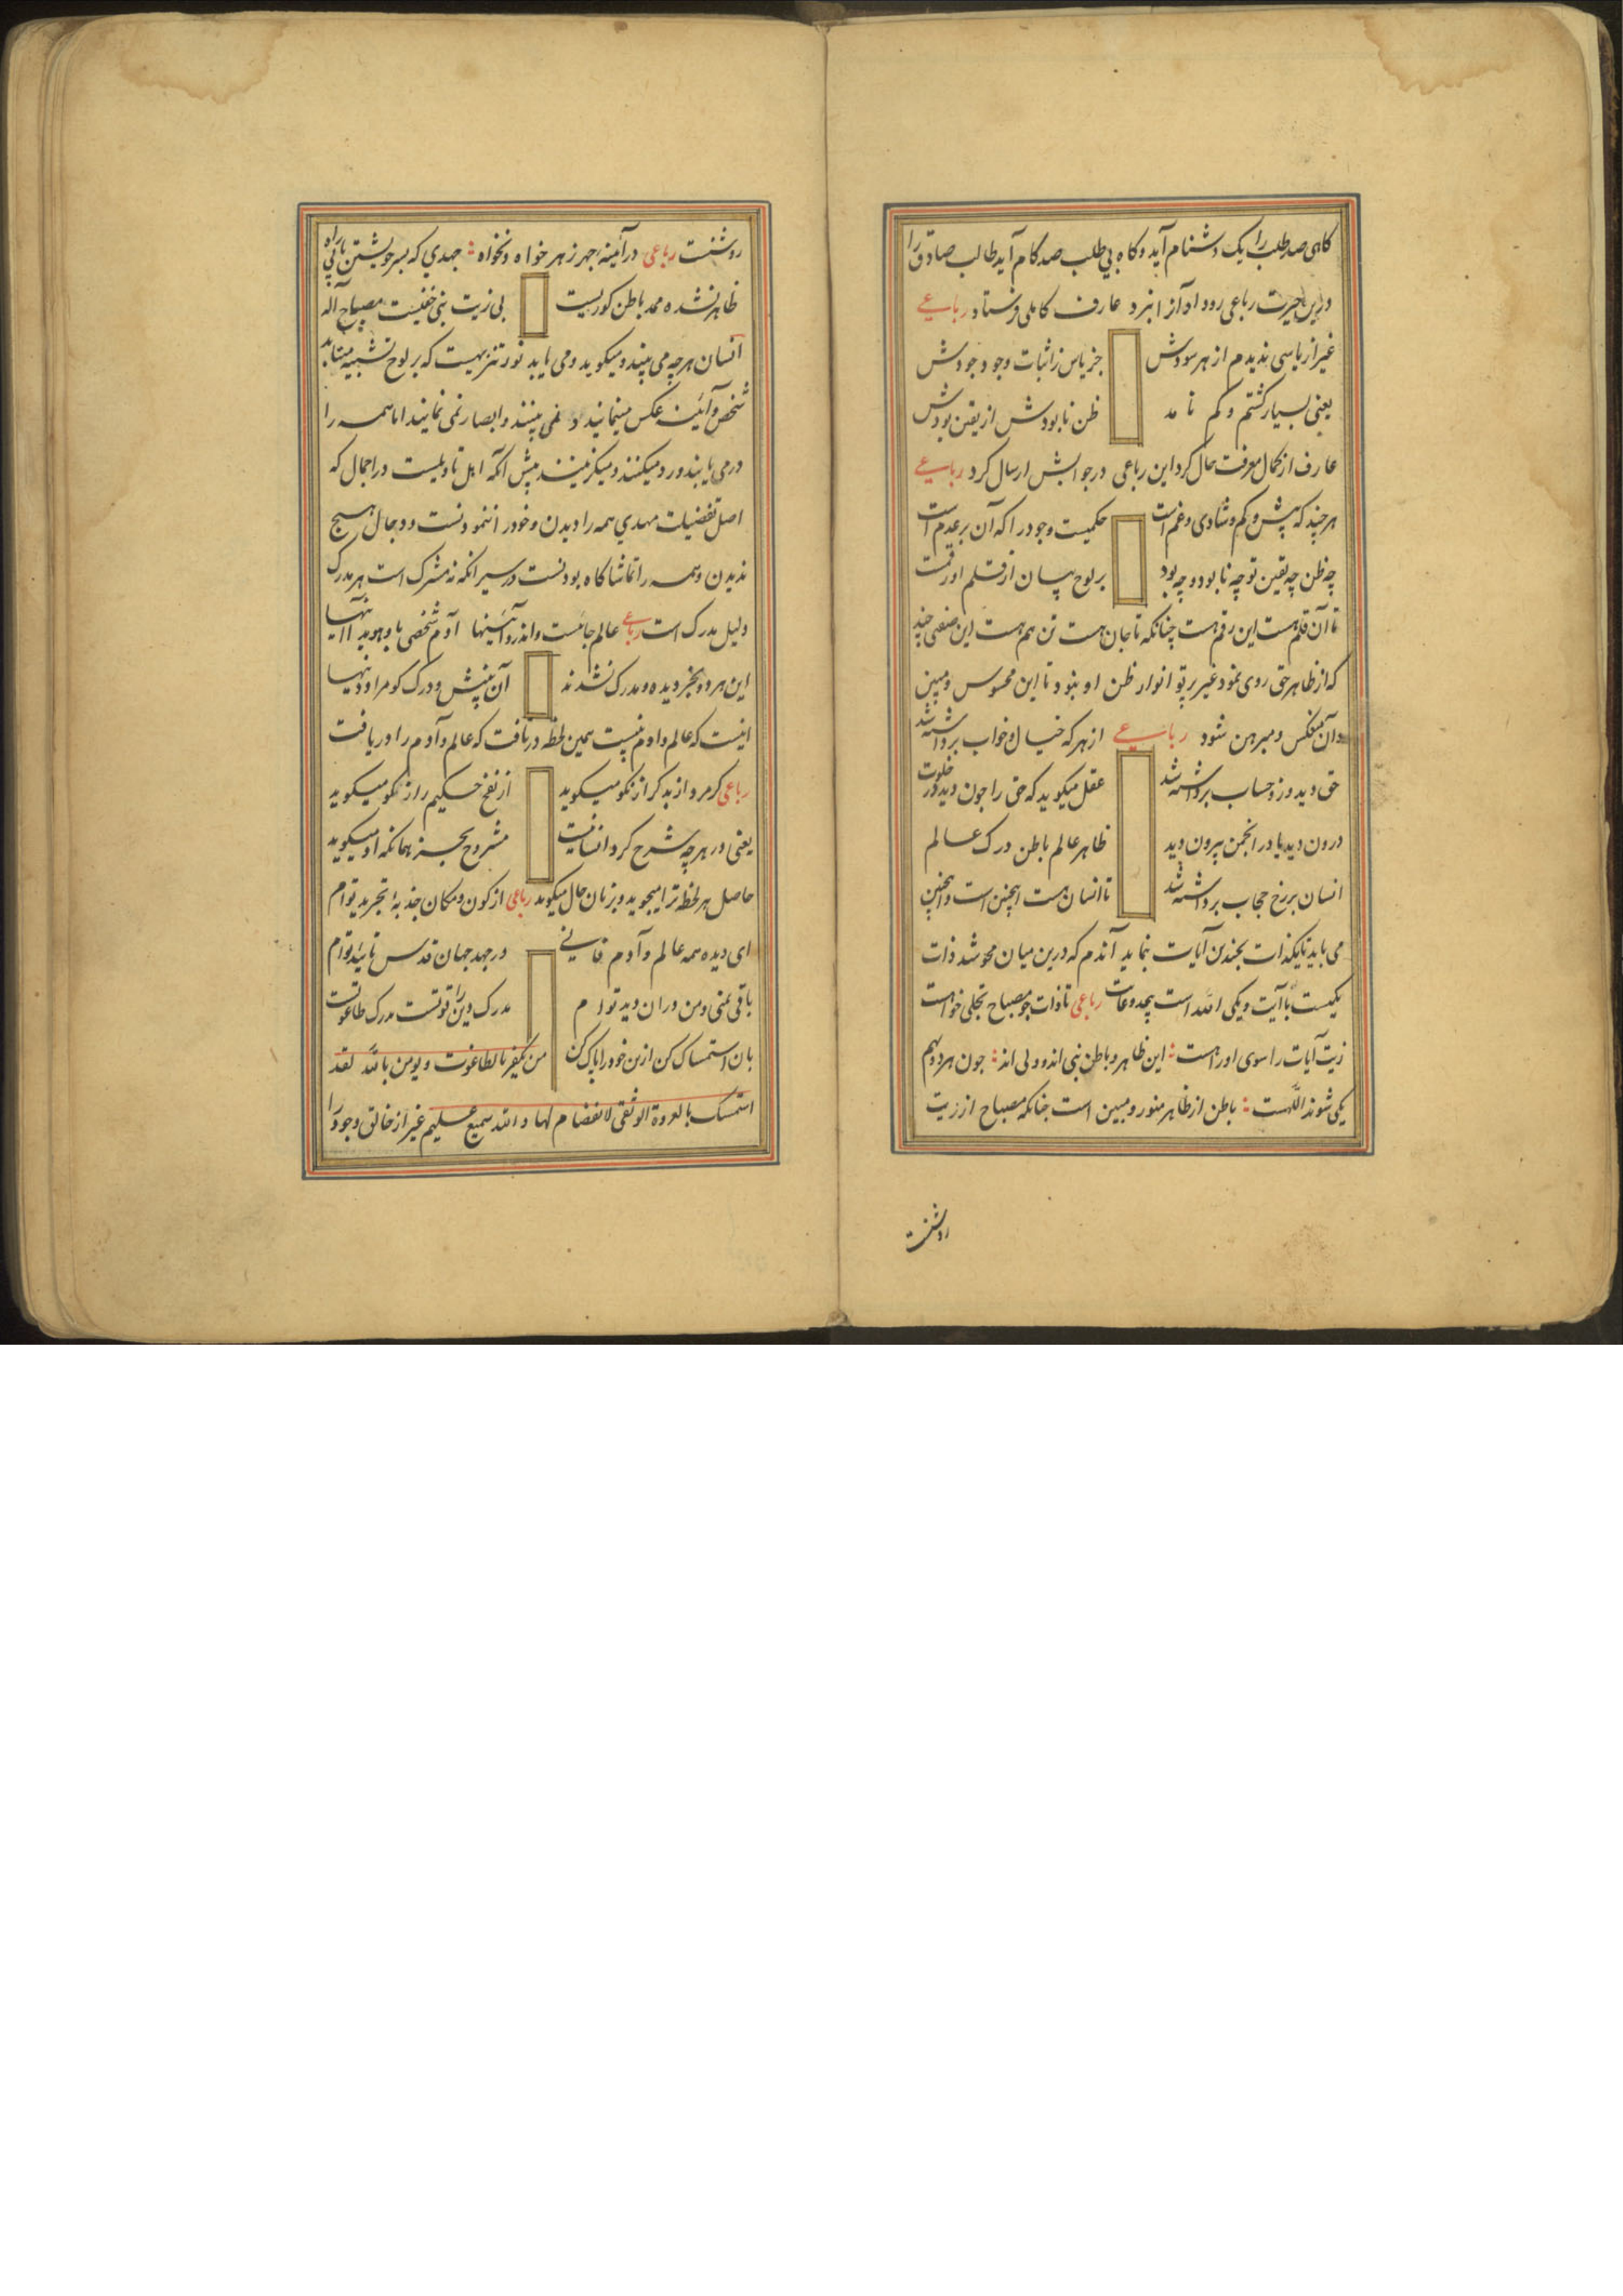 کاهی صد طلب را یک دشنام آید و کاه بی طلب صد کام آید طالب صادق را
درین حیرت رباعی رو داد آنرا نزد عارف کاملی فرستاد رباعی
غیر از یاسی ندیدم از هر سودش جز یاس ز اثبات وجود و جودش
یعنی بسیار کشتم و کم نامد ظن نابودش از یقین بودش
عارف از کمال معرفت حال کرد این رباعی در جوابش ارسال کرد رباعی
هر چند که بیش و کم و شادی و غم است حکمیت وجود را که آن بر عدم است
چه ظن چه یقین تو چه نابود و چه بود بر لوح بیان از قلم او رقمست
تا آن قلم هست این رقم هست چنانکه تا جان هست تن هم هست این صنعی چند
که از ظاهر حق روی نمود غیر پرتو انوار ظن او بنود تا این محسوس و مبین
و آن منعکس و مبرهن شود رباعی از هر که خیال و خواب برداشته شد
حق دید وزو حساب برداشته شد عقل میکوید که حق را چون دید در خلوت
درون دید یا در انجمن بیرون دید ظاهر عالم باطن درک عالم
انسان برزخ حجاب برداشته شد تا انسان هست اینچنین است و اینچنین
می باید تا یکذات بچندین آیات بنماید آندم که درین میان محو شد ذات
یکیست با آیت و یکی الله است بیحد و غات رباعی تا ذات چو مصباح تجلی خواهست
زیت آیات را سوی او راهست این ظاهر و باطن نبی اند و ولی اند چون هر دو بهم
یکی شوند اللهست باطن از ظاهر منور و مبین است چنانکه مصباح از زیت
روشنست
روشنست رباعی در آینه چهر ز هر خواه و نخواه جهدی که بسر خویشتن یابی راه
ظاهر نشده محمد باطن کورست بی زیت نبی خفیست مصباح آله
انسان هر چه می بیند و میکوید و می یابد نور تنزیهیست که بر لوح تشبیه میتابد
شخص و آینه عکس مینمایند و نمی بینند و ابصار نمی نمایند اما همه را
در می یابند و رد میکنند و میکزینند پیش انکه اهل تاویلست در اجمال که
اصل تفضیلت مهدی همه را دیدن و خود را ننمودنست و دجال هیچ
ندیدن و همه را تماشاکاه بودنست در سیر انکه نه مشرک است هر مدرک
دلیل مدرک است رباعی عالم جانیست و اندرو آئینها آدم شخصی باو هوید آاینها
این هر دو بجز دیده و مدرک نشدند آن بینش و درک کو مراد و زینها
اینست که عالم و آدم نیست همین لحظه دریافت که عالم و آدم را دریافت
رباعی کر مرد از بد کر از نکو میکوید از نفخ حکیم راز نکو میکوید
یعنی در هر چه شرح کرد انسانیت مشروح بجز همانکه او میکوید
حاصل هر لحظه ترا میجوید و بزبان حال میکوید رباعی از کون و مکان جذبه تجرید توام
ای دیده همه عالم و آدم فانی در جهد جهان قدس تایید توام
باقی بمنی و من در ان دید توام مدرک دین را قوتست مدرک طاغوتست
بان استمساک کن ازین خود را پاک کن من یکفر بالطاغوت و یومن بالله فقد
استمسک بالعروة الوثقی لا نفصام لها و الله سمیع علیم غیر از خالق وجود را